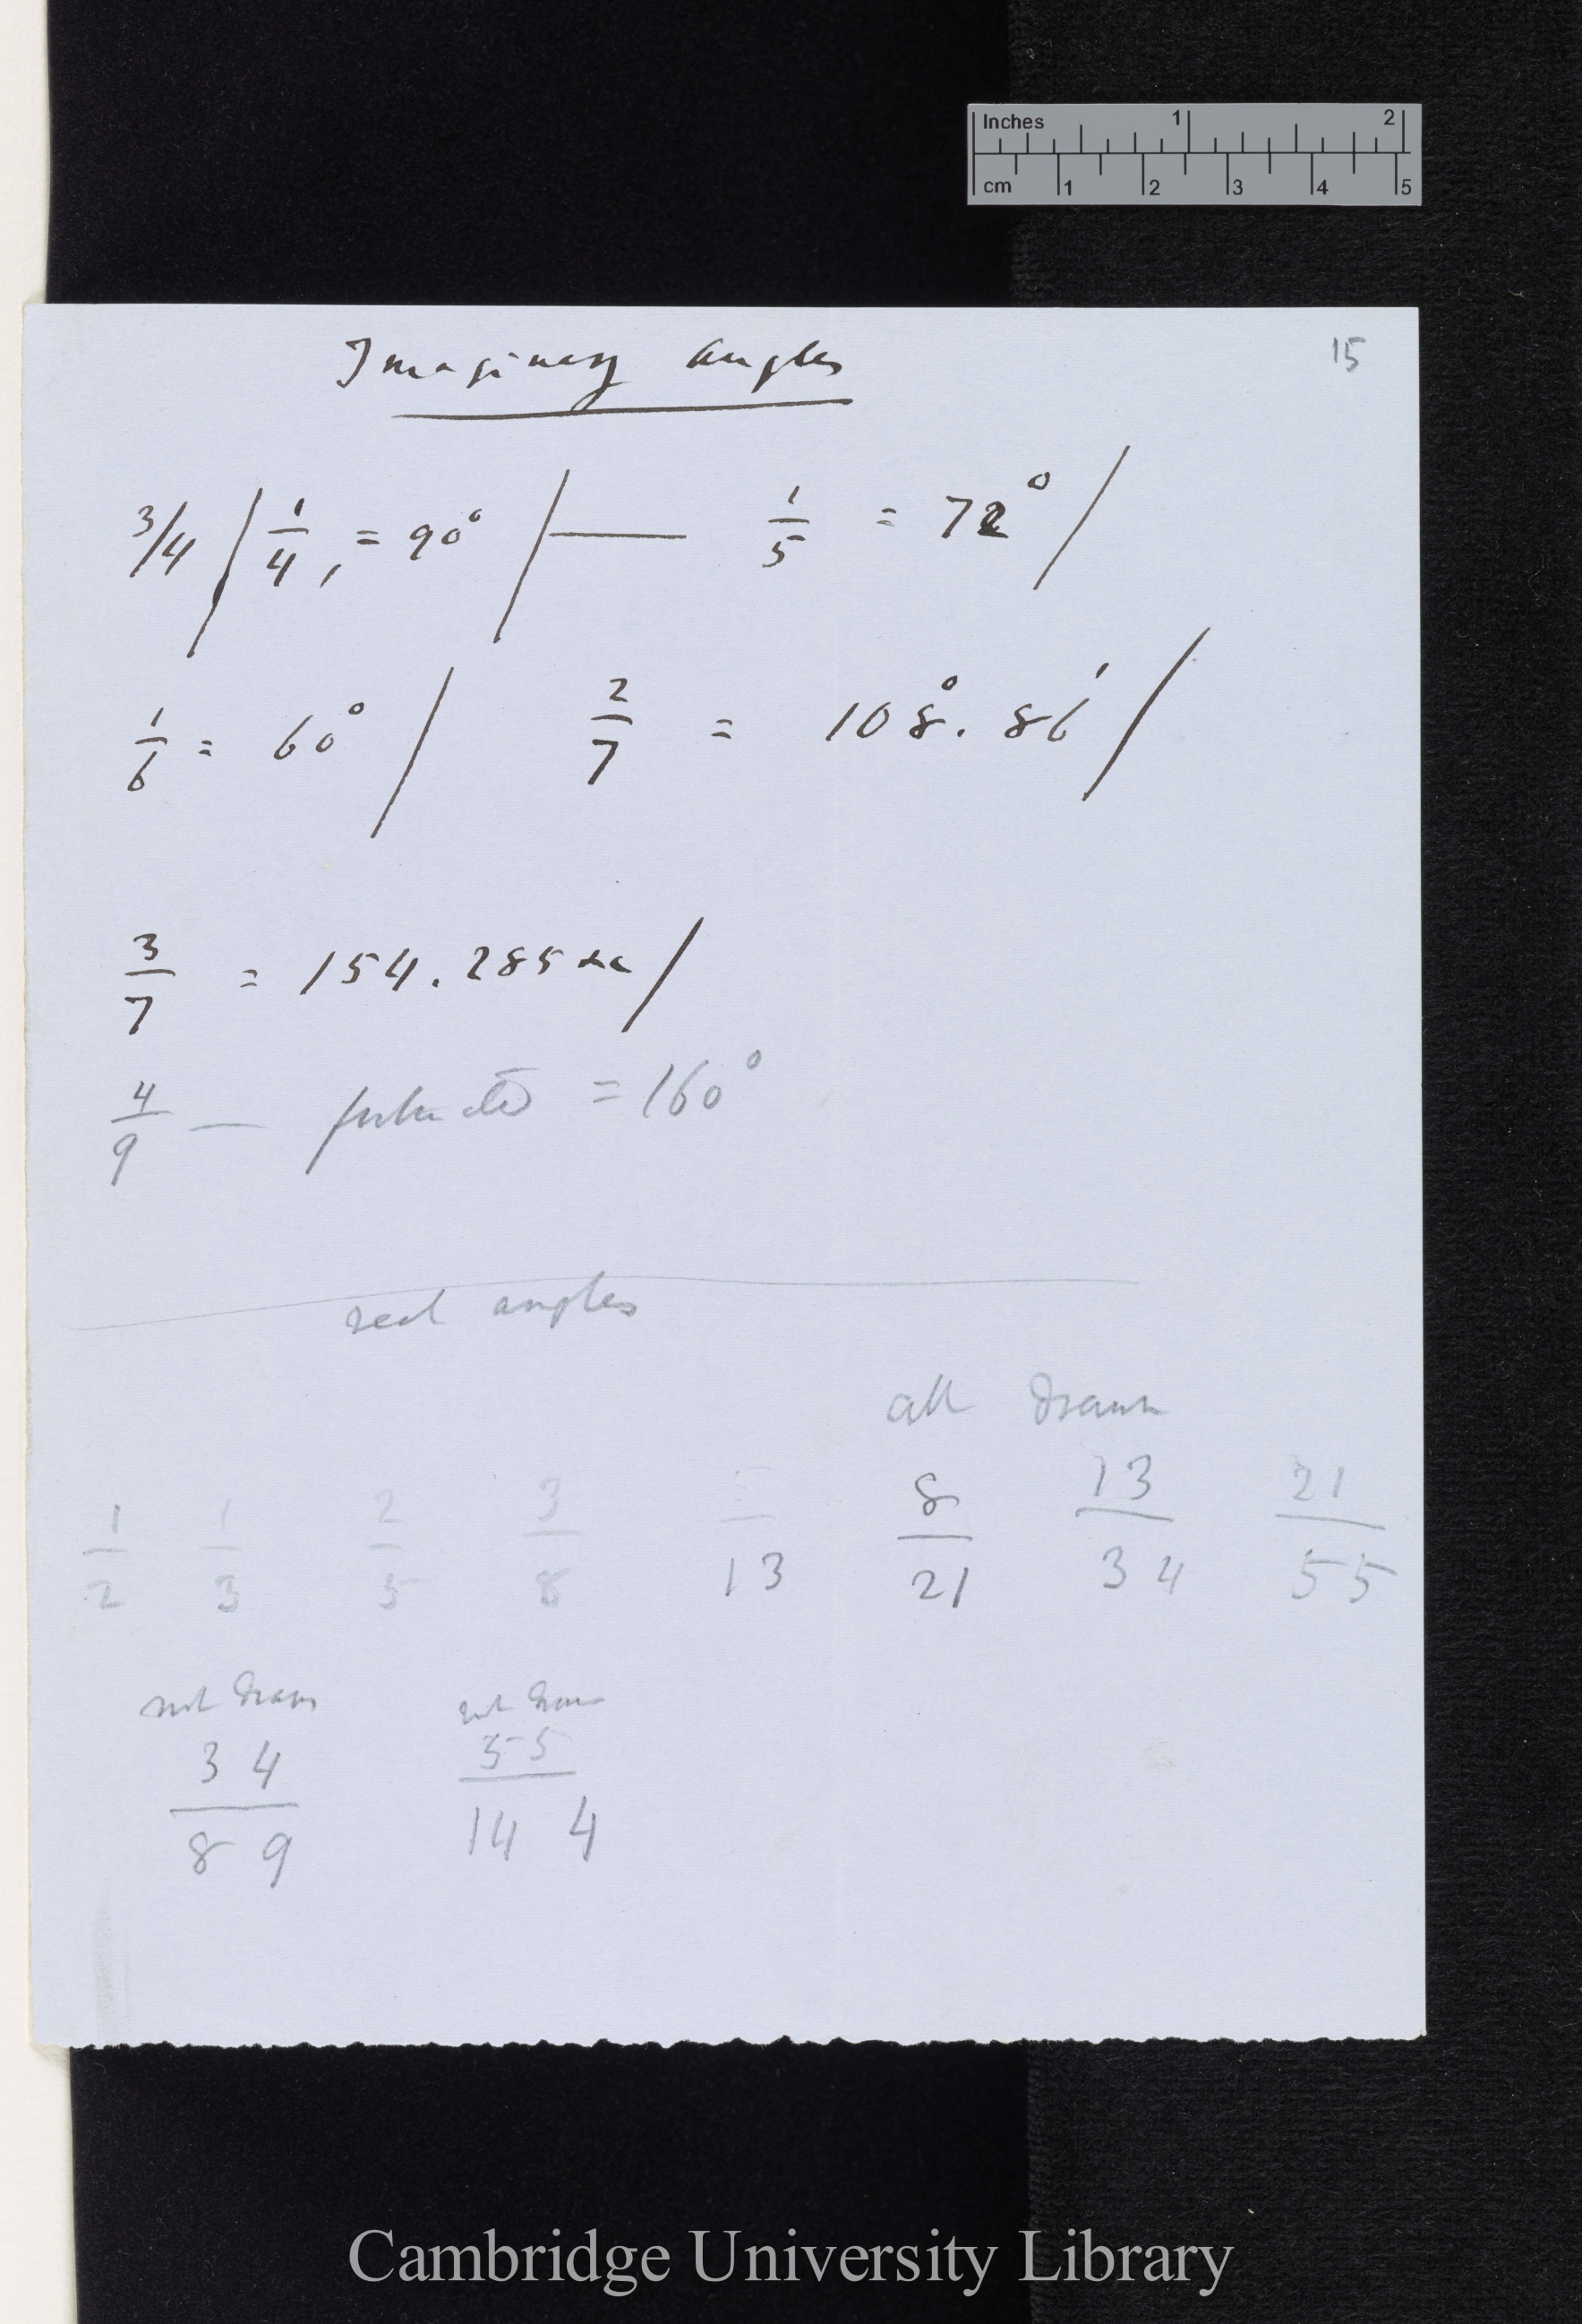 Inches 1 2
cm 1 2 3 4 5
15
Imaginary Angles
3/4 / 1/4, = 90° / — 1/5 = 72° /
1/6 = 60° / 2/7 = 108°. 86' /
3/7 = 154. 285 &c /
4/9 — = 160°
real angles
all drawn
1/2 1/3 2/5 3/8 5/13 8/21 13/34 21/55
not drawn not drawn
34/89 55/144
Cambridge University Library